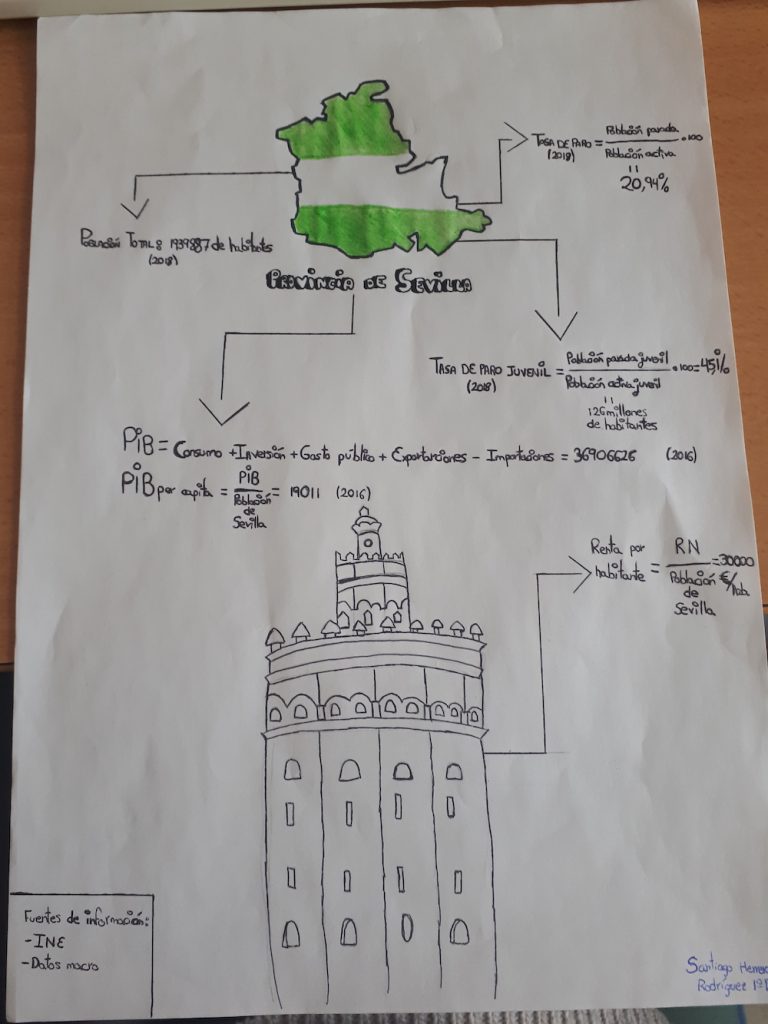 TASA DE PARO = Población parada / Población activa · 100
(2018)
=
20,94%
Población Total: 1939887 de habitantes
(2018)
Provincia de Sevilla
TASA DE PARO JUVENIL = Población parada juvenil / Población activa juvenil · 100 = 45,1%
(2018)
=
126 millones
de habitantes
PiB = Consumo + Inversión + Gasto público + Exportaciones - Importaciones = 36906626 (2016)
PiB per capita = PiB / Población de Sevilla = 19011 (2016)
Renta por habitante = RN / Población de Sevilla = 30000 €/hab
Fuentes de información:
- INE
- Datos macro
Santiago
Rodríguez 1º